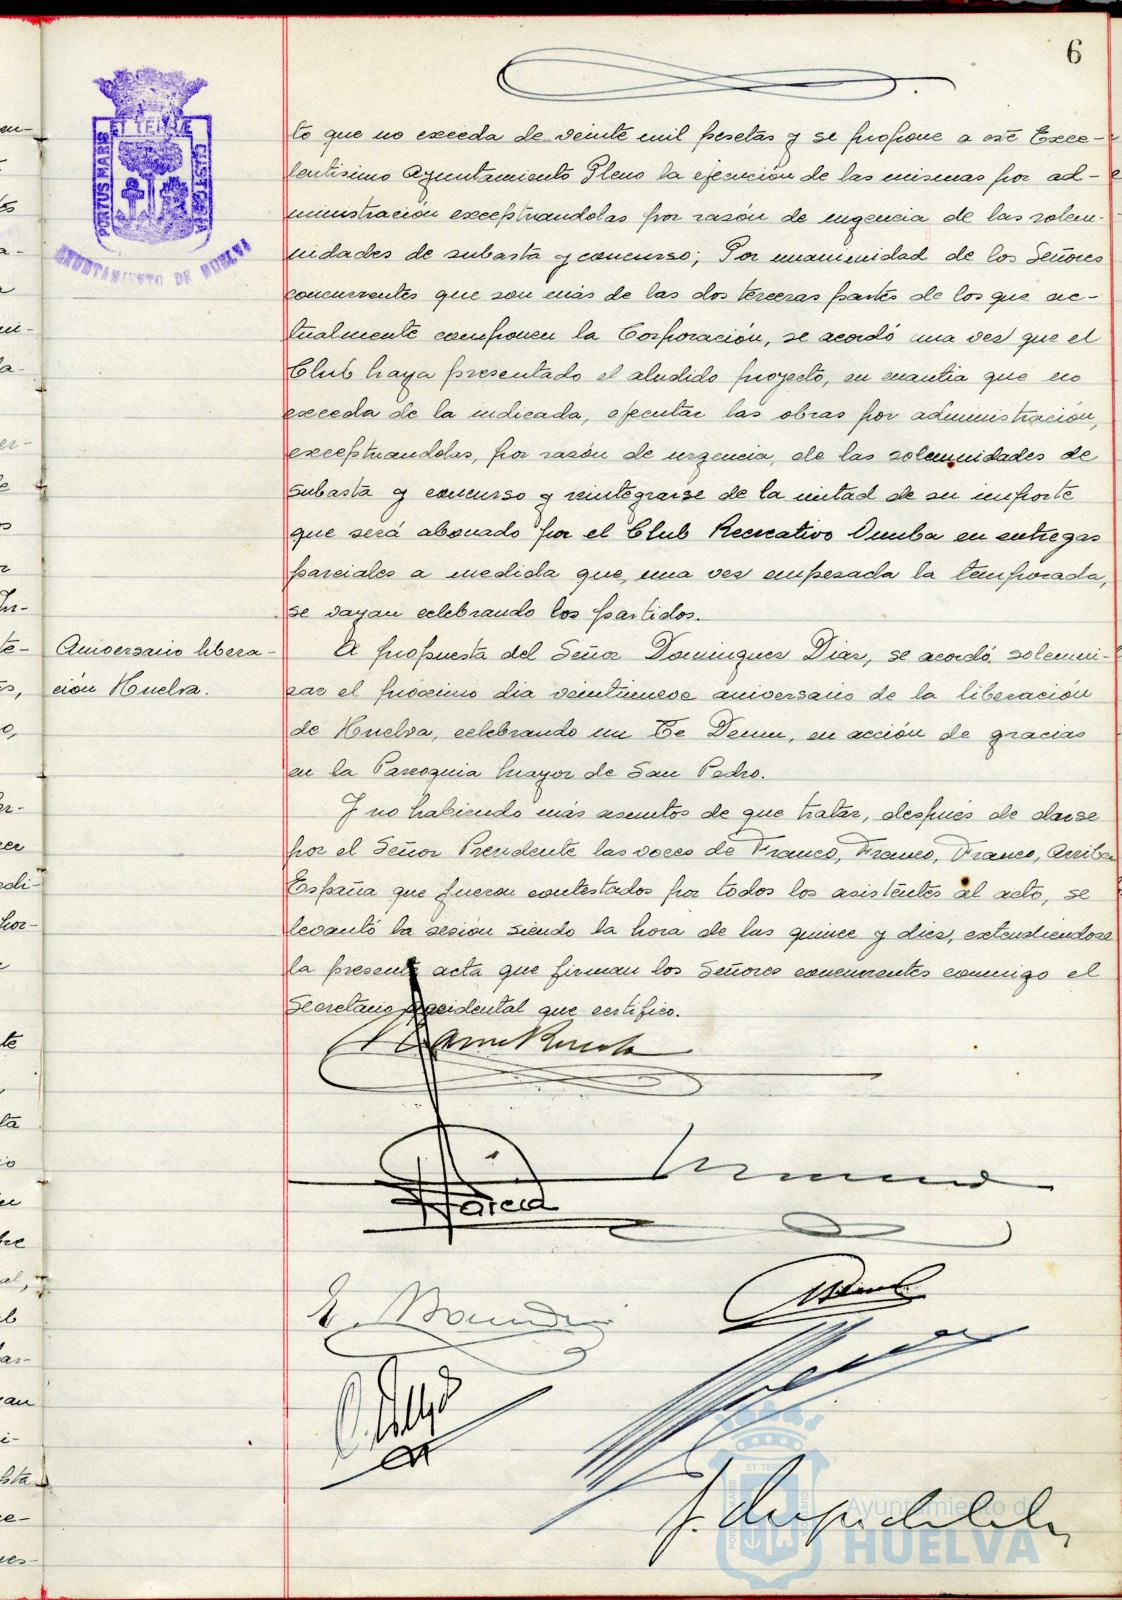 6
PORTUS MARIS ET TERRAE CUSTODIA
AYUNTAMIENTO DE HUELVA
to que no exceda de veinte mil pesetas y se propone a este Exce-
lentisimo Ayuntamiento Pleno la ejecución de las mismas por ad-
ministración exceptuandolas por razón de urgencia de las solem-
nidades de subasta y concurso; Por unanimidad de los Señores
concurrentes que son más de las dos terceras partes de los que ac-
tualmente componen la Corporación, se acordó una vez que el
Club haya presentado el aludido proyecto, en cuantia que no
exceda de la indicada, ejecutar las obras por administración,
exceptuandolas, por razón de urgencia, de las solemnidades de
subasta y concurso y reintegrarse de la mitad de su importe
que será abonado por el Club Recreativo Onuba en entregas
parciales a medida que, una vez empezada la temporada,
se vayan celebrando los partidos.
Aniversario libera-
ción Huelva.
A propuesta del Señor Dominguez Diaz, se acordó solemni-
zar el próximo dia veintinueve aniversario de la liberación
de Huelva, celebrando un Te Deum, en acción de gracias
en la Parroquia Mayor de San Pedro.
Y no habiendo más asuntos de que tratar, después de darse
por el Señor Presidente las voces de Franco, Franco, Franco, Arriba
España que fueron contestados por todos los asistentes al acto, se
levantó la sesión siendo la hora de las quince y diez, extendiendose
la presente acta que firman los Señores concurrentes conmigo el
Secretario accidental que certifico.
Garcia
Ayuntamiento de
HUELVA